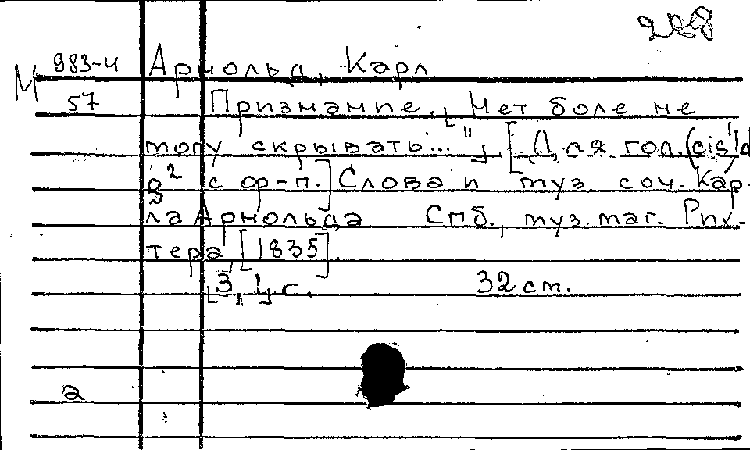 288
М 983-4 Арнольд, Карл
57 Признание. „Нет боле не
могу скрывать..." [Для гол. (cis¹
g² с ф-п.] Слова и муз. соч. Кар-
ла Арнольда Спб., муз. маг. Рих-
тера, [1835].
[3, 1] с. 32 см.
2